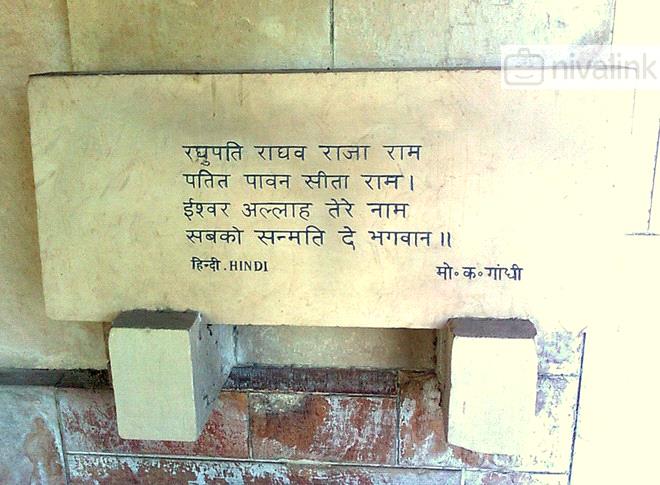 nivalink
रघुपति राघव राजा राम
पतित पावन सीता राम।
ईश्वर अल्लाह तेरे नाम
सबको सन्मति दे भगवान॥
हिन्दी. HINDI
मो॰क॰गांधी